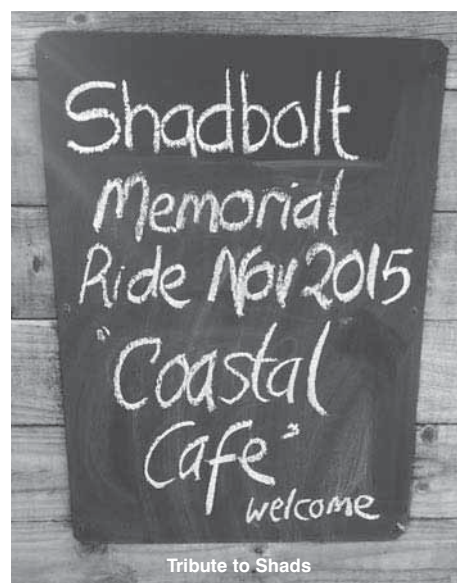 Shadbolt
Memorial
Ride Nov 2015
"Coastal
Cafe"
welcome
Tribute to Shads